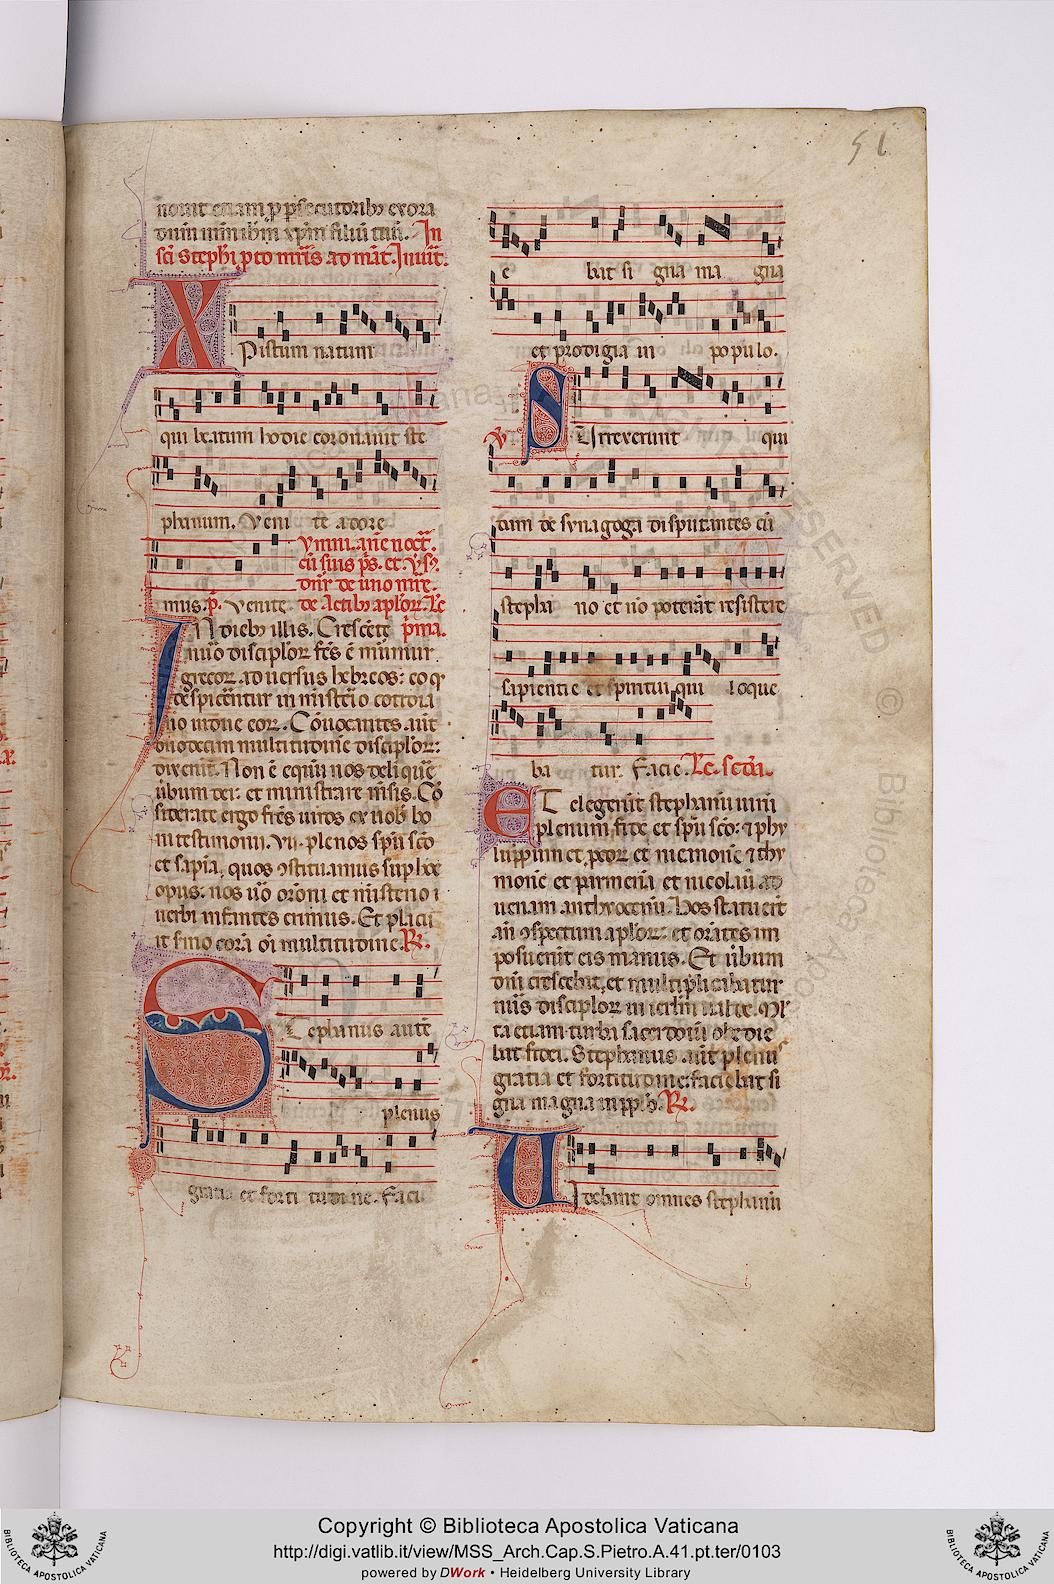 51
nouit etiam p psecutorib' exora
dnm nrm ihm xpm filiu tuu. In
sci stephi pto mris ad mat. Inuit.
Xpistum natum
qui beatum hodie coronauit ste
phanum. Veni te adore
ymni. ane noct.
cu suis ps. et ỹs
dnr de uno mre.
mus. p. Venite de Actib' aplor. Le
In dieb' illis. Crescete pma.
nuo disciplor fcs e murmur
grecor. aduersus hebreos: eo q
despicerentur in misterio cottidia
no uidue eor. Couocantes. aut
duodecim multitudine disciplor:
dixerut. Non e equu nos deliquẽ
ubum dei: et ministrare mesis. Co
siderate ergo fres uiros ex uob bo
ni testimonii. vii. plenos spu sco
et sapia. quos 9stituamus sup hoc
opus: nos uo oroni et misterio
uerbi instantes erimus. Et placu
it smo cora oi multitudine. R.
Stephanus aute
plenus
gratia et forti tudine. Faci
e bat si gna ma gna
et prodigia in populo.
V Surrexerunt qui
dam de synagoga disputantes cu
stepha no et no poterat resistere
sapientie et spiritui qui loque
ba tur. Facie. Le. scda.
Et elegerut stephanu uiru
plenum fide et spu sco: 7 phy
lippum et pcor et nicanore 7 thy
mone et parmena et nicolau ad
uenam anthiocenu. Hos statuerut
an 9spectum aplor. et orates im
posuerut eis manus. Et ubum
dni crescebat, et multiplicabatur
nus disciplor in ierlm ualde. Ml
ta etiam turba sacerdotu obedie
bat fidei. Stephanus aut plenus
gratia et fortitudine: faciebat si
gna magna in pplo. R.
Uidebant omnes stephanu
Copyright © Biblioteca Apostolica Vaticana
http://digi.vatlib.it/view/MSS_Arch.Cap.S.Pietro.A.41.pt.ter/0103
powered by DWork • Heidelberg University Library
BIBLIOTECA APOSTOLICA VATICANA
BIBLIOTECA APOSTOLICA VATICANA